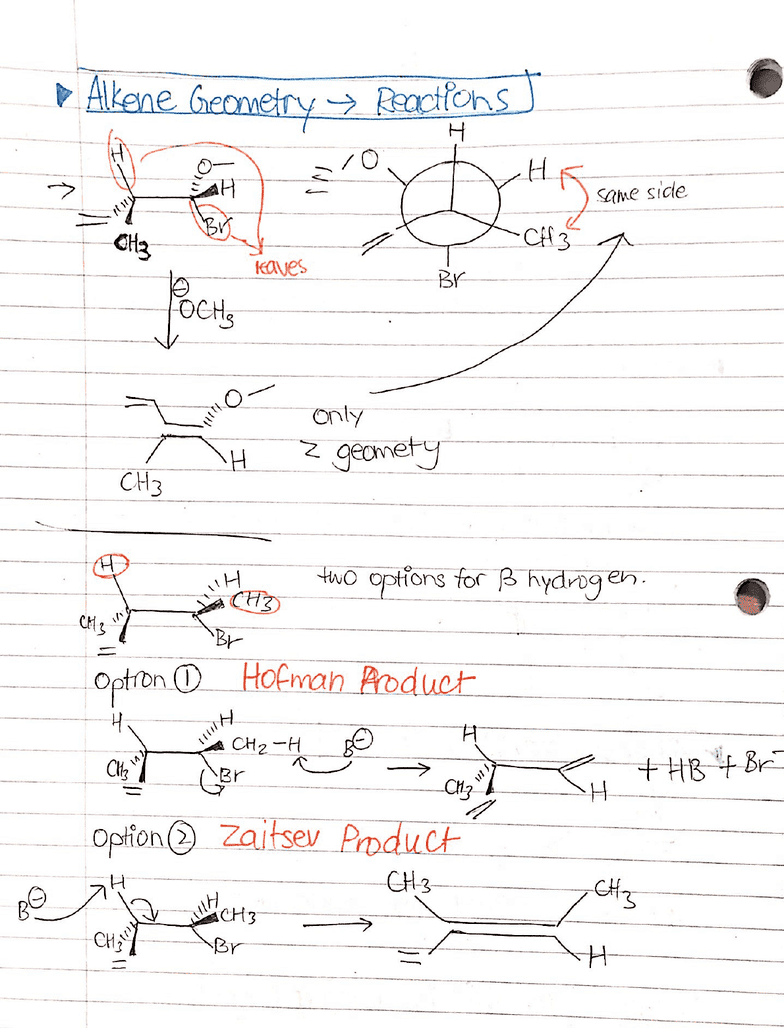 Alkene Geometry → Reactions
H
H O
O H
H
same side
Br
CH3
CH3
leaves
Br
⊖
OCH3
O
only
H
Z geomety
CH3
H
H
two options for β hydrogen.
CH3
CH3
Br
Option ① Hofman Product
H
H
H
CH2-H B⊖
CH3
Br
→
CH3
H
+ HB + Br⁻
Option ② Zaitsev Product
H
CH3
CH3
B⊖
H
CH3
CH3
Br
→
H